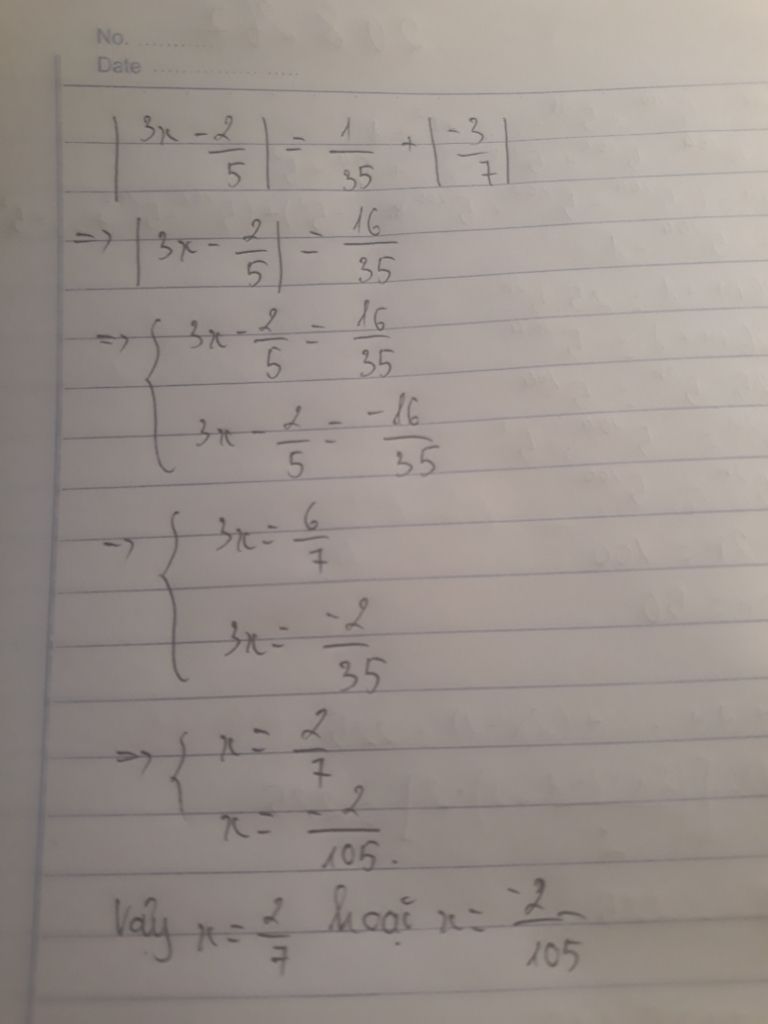 No. ............
Date ......................
| 3x - 2/5 | = 1/35 + | -3/7 |
=> | 3x - 2/5 | = 16/35
=> { 3x - 2/5 = 16/35
3x - 2/5 = -16/35
=> { 3x = 6/7
3x = -2/35
=> { x = 2/7
x = -2/105.
Vậy x = 2/7 hoặc x = -2/105